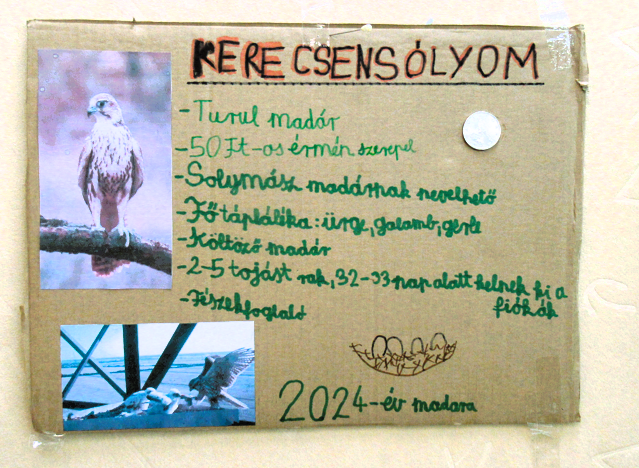 KERECSENSÓLYOM
-Turul madár
-50 Ft-os érmén szerepel
-Solymász madárnak nevelhető
-Fő tápláléka: ürge, galamb, gerle
-Költöző madár
-2-5 tojást rak, 32-33 nap alatt kelnek ki a
fiókák
-Fészekfoglaló
2024-év madara